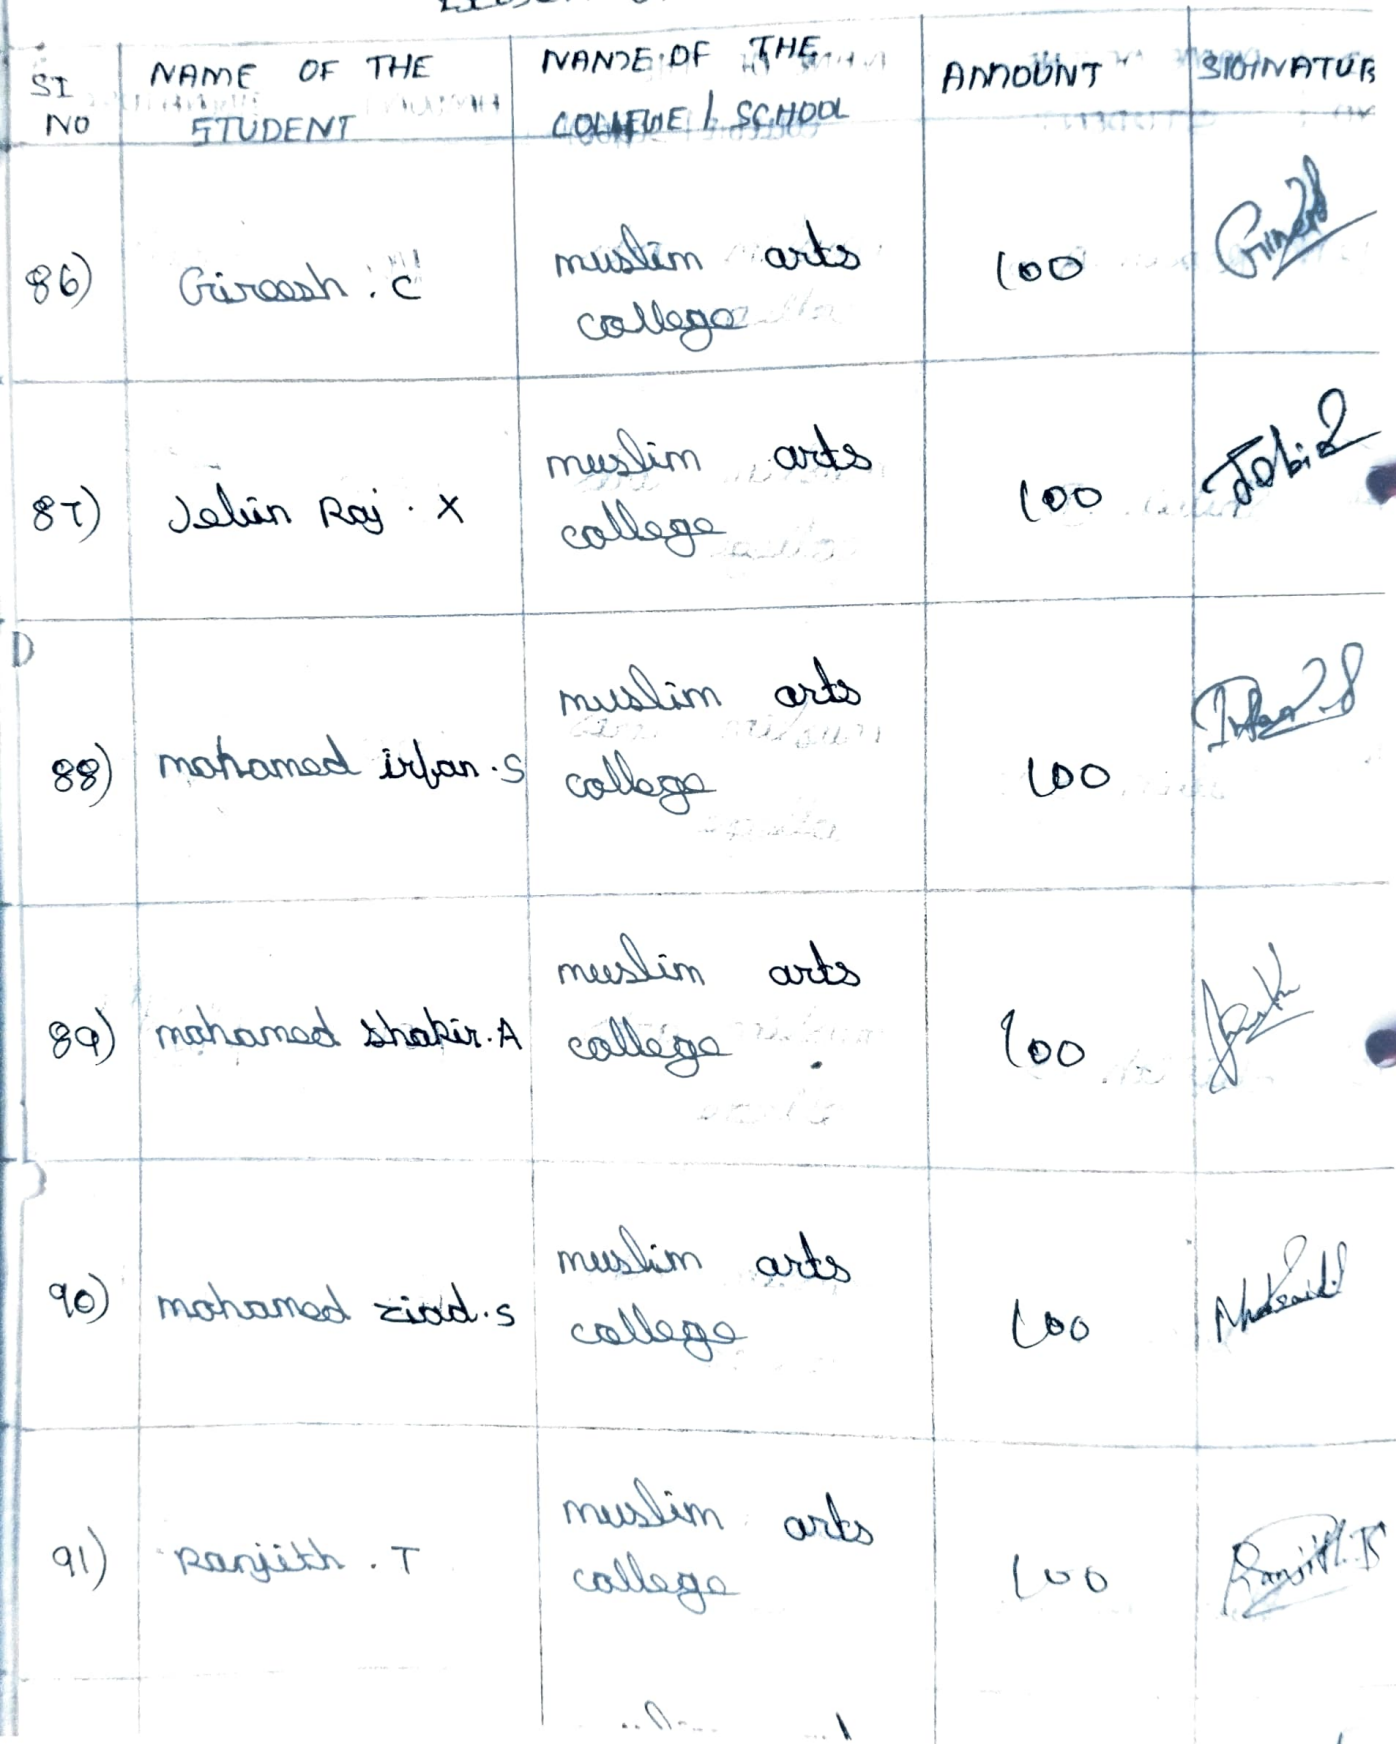 SI NO
NAME OF THE STUDENT
NAME OF THE COLLEGE / SCHOOL
AMOUNT
SIGINATUR
86) Gireesh . C muslim arts college 100
87) Jebin Raj . X muslim arts college 100
88) mohamed irfan . S muslim arts college 100
89) mohamed shakir . A muslim arts college 100
90) mohamed ziad . S muslim arts college 100
91) Ranjith . T muslim arts college 100